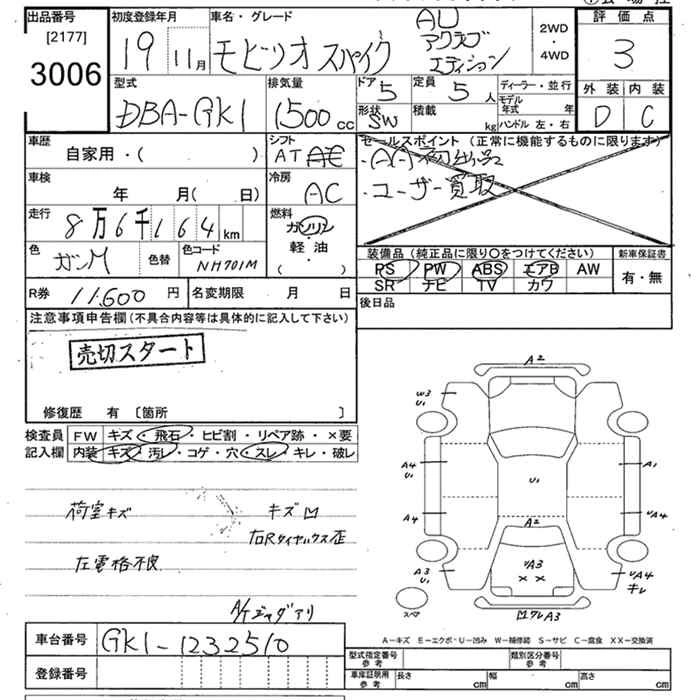 出品番号
[2177]
3006
初度登録年月
19 11月
車名・グレード
モビリオスパイク
AU
アクラブ
エディション
2WD
・
4WD
評価点
3
外装 内装
D C
型式
DBA-GK1
排気量
1500 CC
ドア
5
定員
5 人
形状
SW
積載
kg
ディーラー・並行
モデル年式 年
ハンドル 左・右
車歴
自家用・( )
シフト
AT AE
セールスポイント (正常に機能するものに限ります)
・AA初出品
・ユーザー買取
車検
年 月( 日)
冷房
AC
走行
8万6千164 km
燃料
ガソリン
軽・油
( )
色
ガンM
色替
色コード
NH701M
装備品 (純正品に限り〇をつけてください)
PS PW ABS エアB AW
SR ナビ TV カワ
新車保証書
有・無
R券 11,600 円
名変期限 月 日
後日品
注意事項申告欄 (不具合内容等は具体的に記入して下さい)
売切スタート
修復歴 有 〔箇所 〕
検査員
記入欄
FW キズ・飛石・ヒビ割・リペア跡・×要
内装 キズ・汚レ・コゲ・穴・スレ・キレ・破レ
荷室キズ
キズ凹
右Rタイヤハウス歪
左電格不良
A/Tジャダアリ
車台番号
GK1-1232510
登録番号
A2
W3
U1
A4
U1
U1
A1
A4
A2
UA4
A3
U1
UA3
××
UA4
キレ
スペア
凹ワレA3
A-キズ E-エクボ・U-凹み W-補修跡 S-サビ C-腐食 XX-交換済
型式指定番号
参考
類別区分番号
参考
車庫証明用
参考
長さ cm
幅 cm
高さ cm